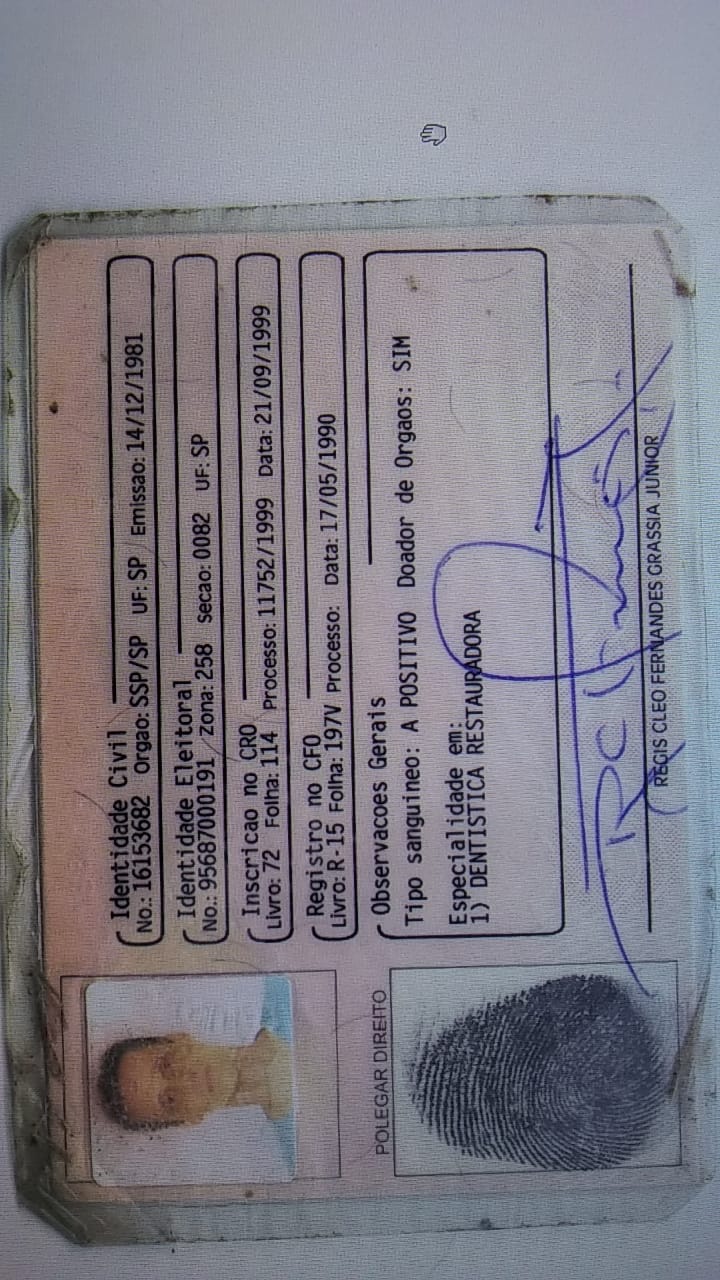 Identidade Civil
No.: 16153682 Orgao: SSP/SP UF: SP Emissao: 14/12/1981
Identidade Eleitoral
No.: 95687000191 zona: 258 secao: 0082 UF: SP
Inscricao no CRO
Livro: 72 Folha: 114 Processo: 11752/1999 Data: 21/09/1999
Registro no CFO
Livro: R-15 Folha: 197V Processo: Data: 17/05/1990
Observacoes Gerais
Tipo sanguineo: A POSITIVO Doador de Orgaos: SIM
Especialidade em:
1) DENTISTICA RESTAURADORA
POLEGAR DIREITO
REGIS CLEO FERNANDES GRASSIA JUNIOR